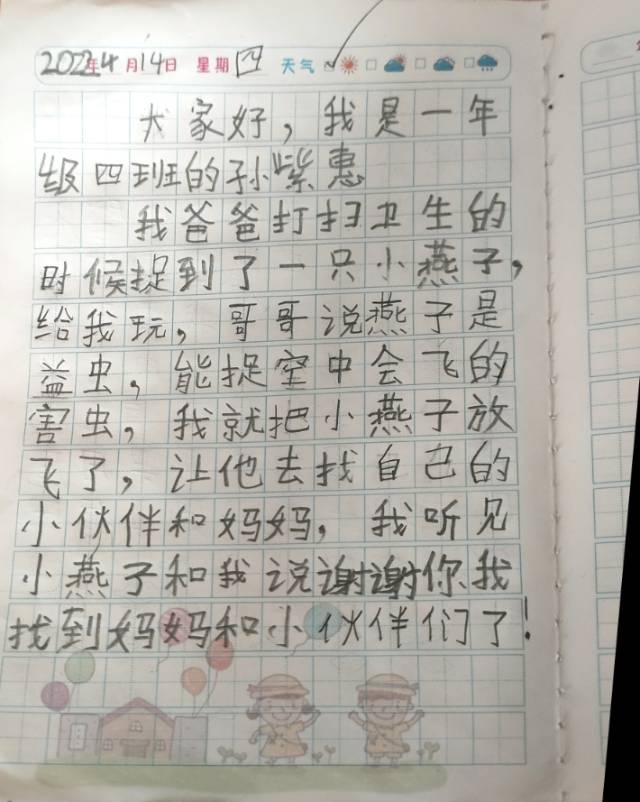 2022年4月14日 星期四 天气
大家好，我是一年
级四班的孙紫惠
我爸爸打扫卫生的
时候捉到了一只小燕子，
给我玩，哥哥说燕子是
益虫，能捉空中会飞的
害虫，我就把小燕子放
飞了，让他去找自己的
小伙伴和妈妈，我听见
小燕子和我说谢谢你、我
找到妈妈和小伙伴们了！